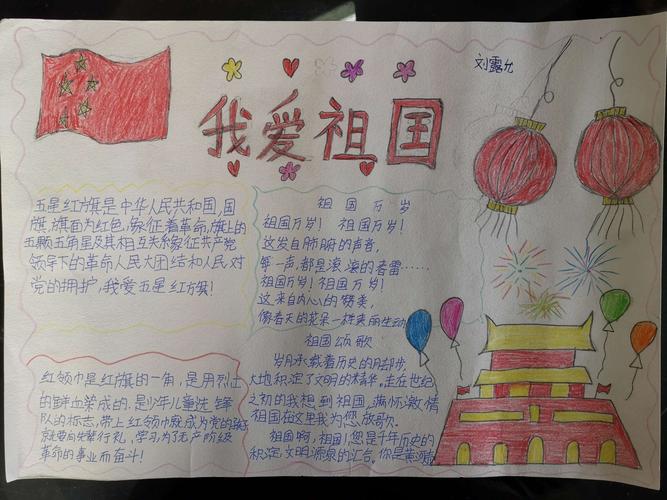 刘露允
我爱祖国
五星红旗是中华人民共和国,国
旗,旗面为红色,象征着革命,旗上的
五颗五角星及其相互关系象征共产党
领导下的革命人民大团结和人民对
党的拥护,我爱五星红旗!
祖国万岁
祖国万岁! 祖国万岁!
这发自肺腑的声音,
每一声,都是滚滚的春雷……
祖国万岁!祖国万岁!
这来自内心的赞美,
像春天的花朵一样美丽生动
祖国颂歌
岁月承载着历史的脚步,
大地积淀了文明的精华。走在世纪
之初的我想到祖国,满怀激情
祖国在这里我为您放歌.
祖国啊,祖国!您是千年历史的
积淀,文明源泉的汇合。你是黄河
红领巾是红旗的一角,是用烈士
的鲜血染成的,是少年儿童先锋
队的标志,带上红领巾
就要向先辈行礼,学习为了无产阶级
革命的事业而奋斗!